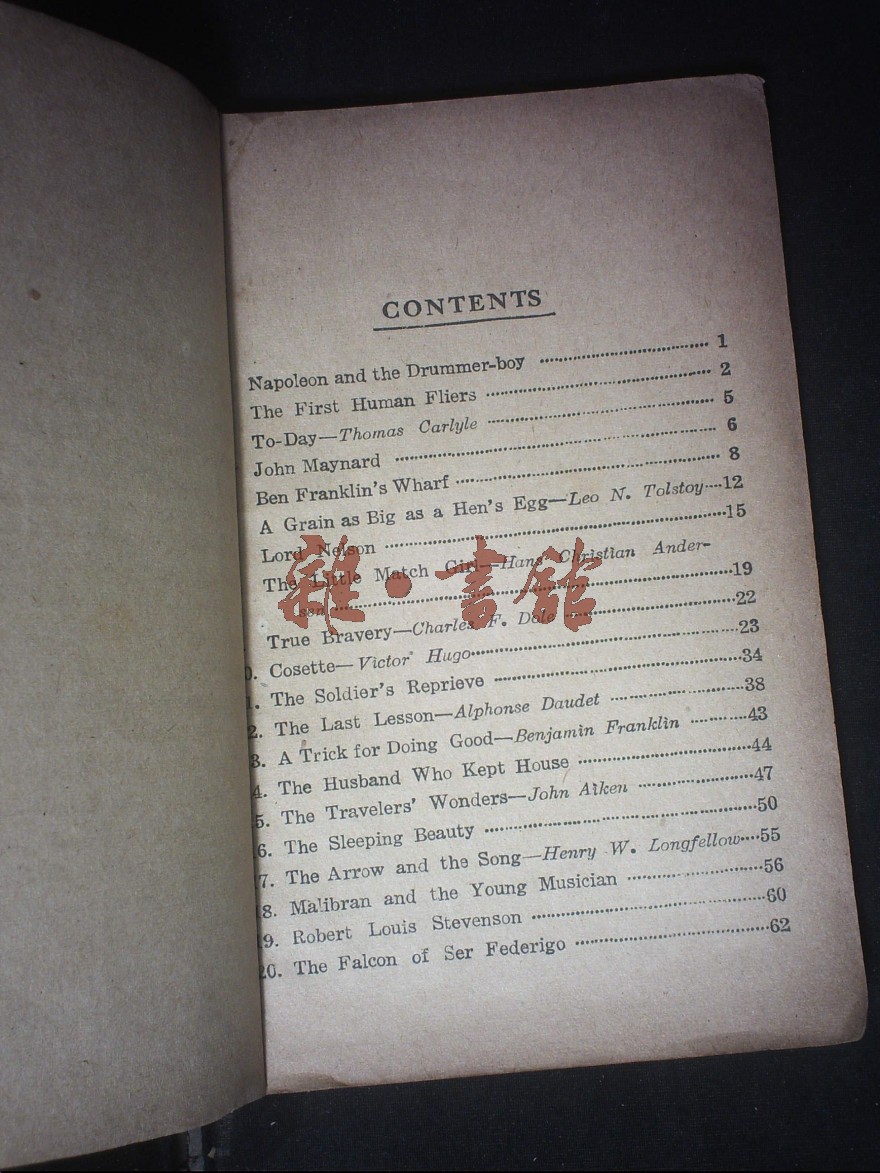 CONTENTS
Napoleon and the Drummer-boy ........ 1
The First Human Fliers ........ 2
To-Day—Thomas Carlyle ........ 5
John Maynard ........ 6
Ben Franklin's Wharf ........ 8
A Grain as Big as a Hen's Egg—Leo N. Tolstoy....12
Lord Nelson ........15
The Little Match Girl—Hans Christian Ander-
sen ........19
True Bravery—Charles F. Dole ........22
0. Cosette—Victor Hugo........23
1. The Soldier's Reprieve ........34
2. The Last Lesson—Alphonse Daudet ........38
3. A Trick for Doing Good—Benjamin Franklin ........43
4. The Husband Who Kept House ........44
5. The Travelers' Wonders—John Aiken ........47
6. The Sleeping Beauty ........50
7. The Arrow and the Song—Henry W. Longfellow....55
18. Malibran and the Young Musician ........56
19. Robert Louis Stevenson ........60
20. The Falcon of Ser Federigo ........62
雜·書館